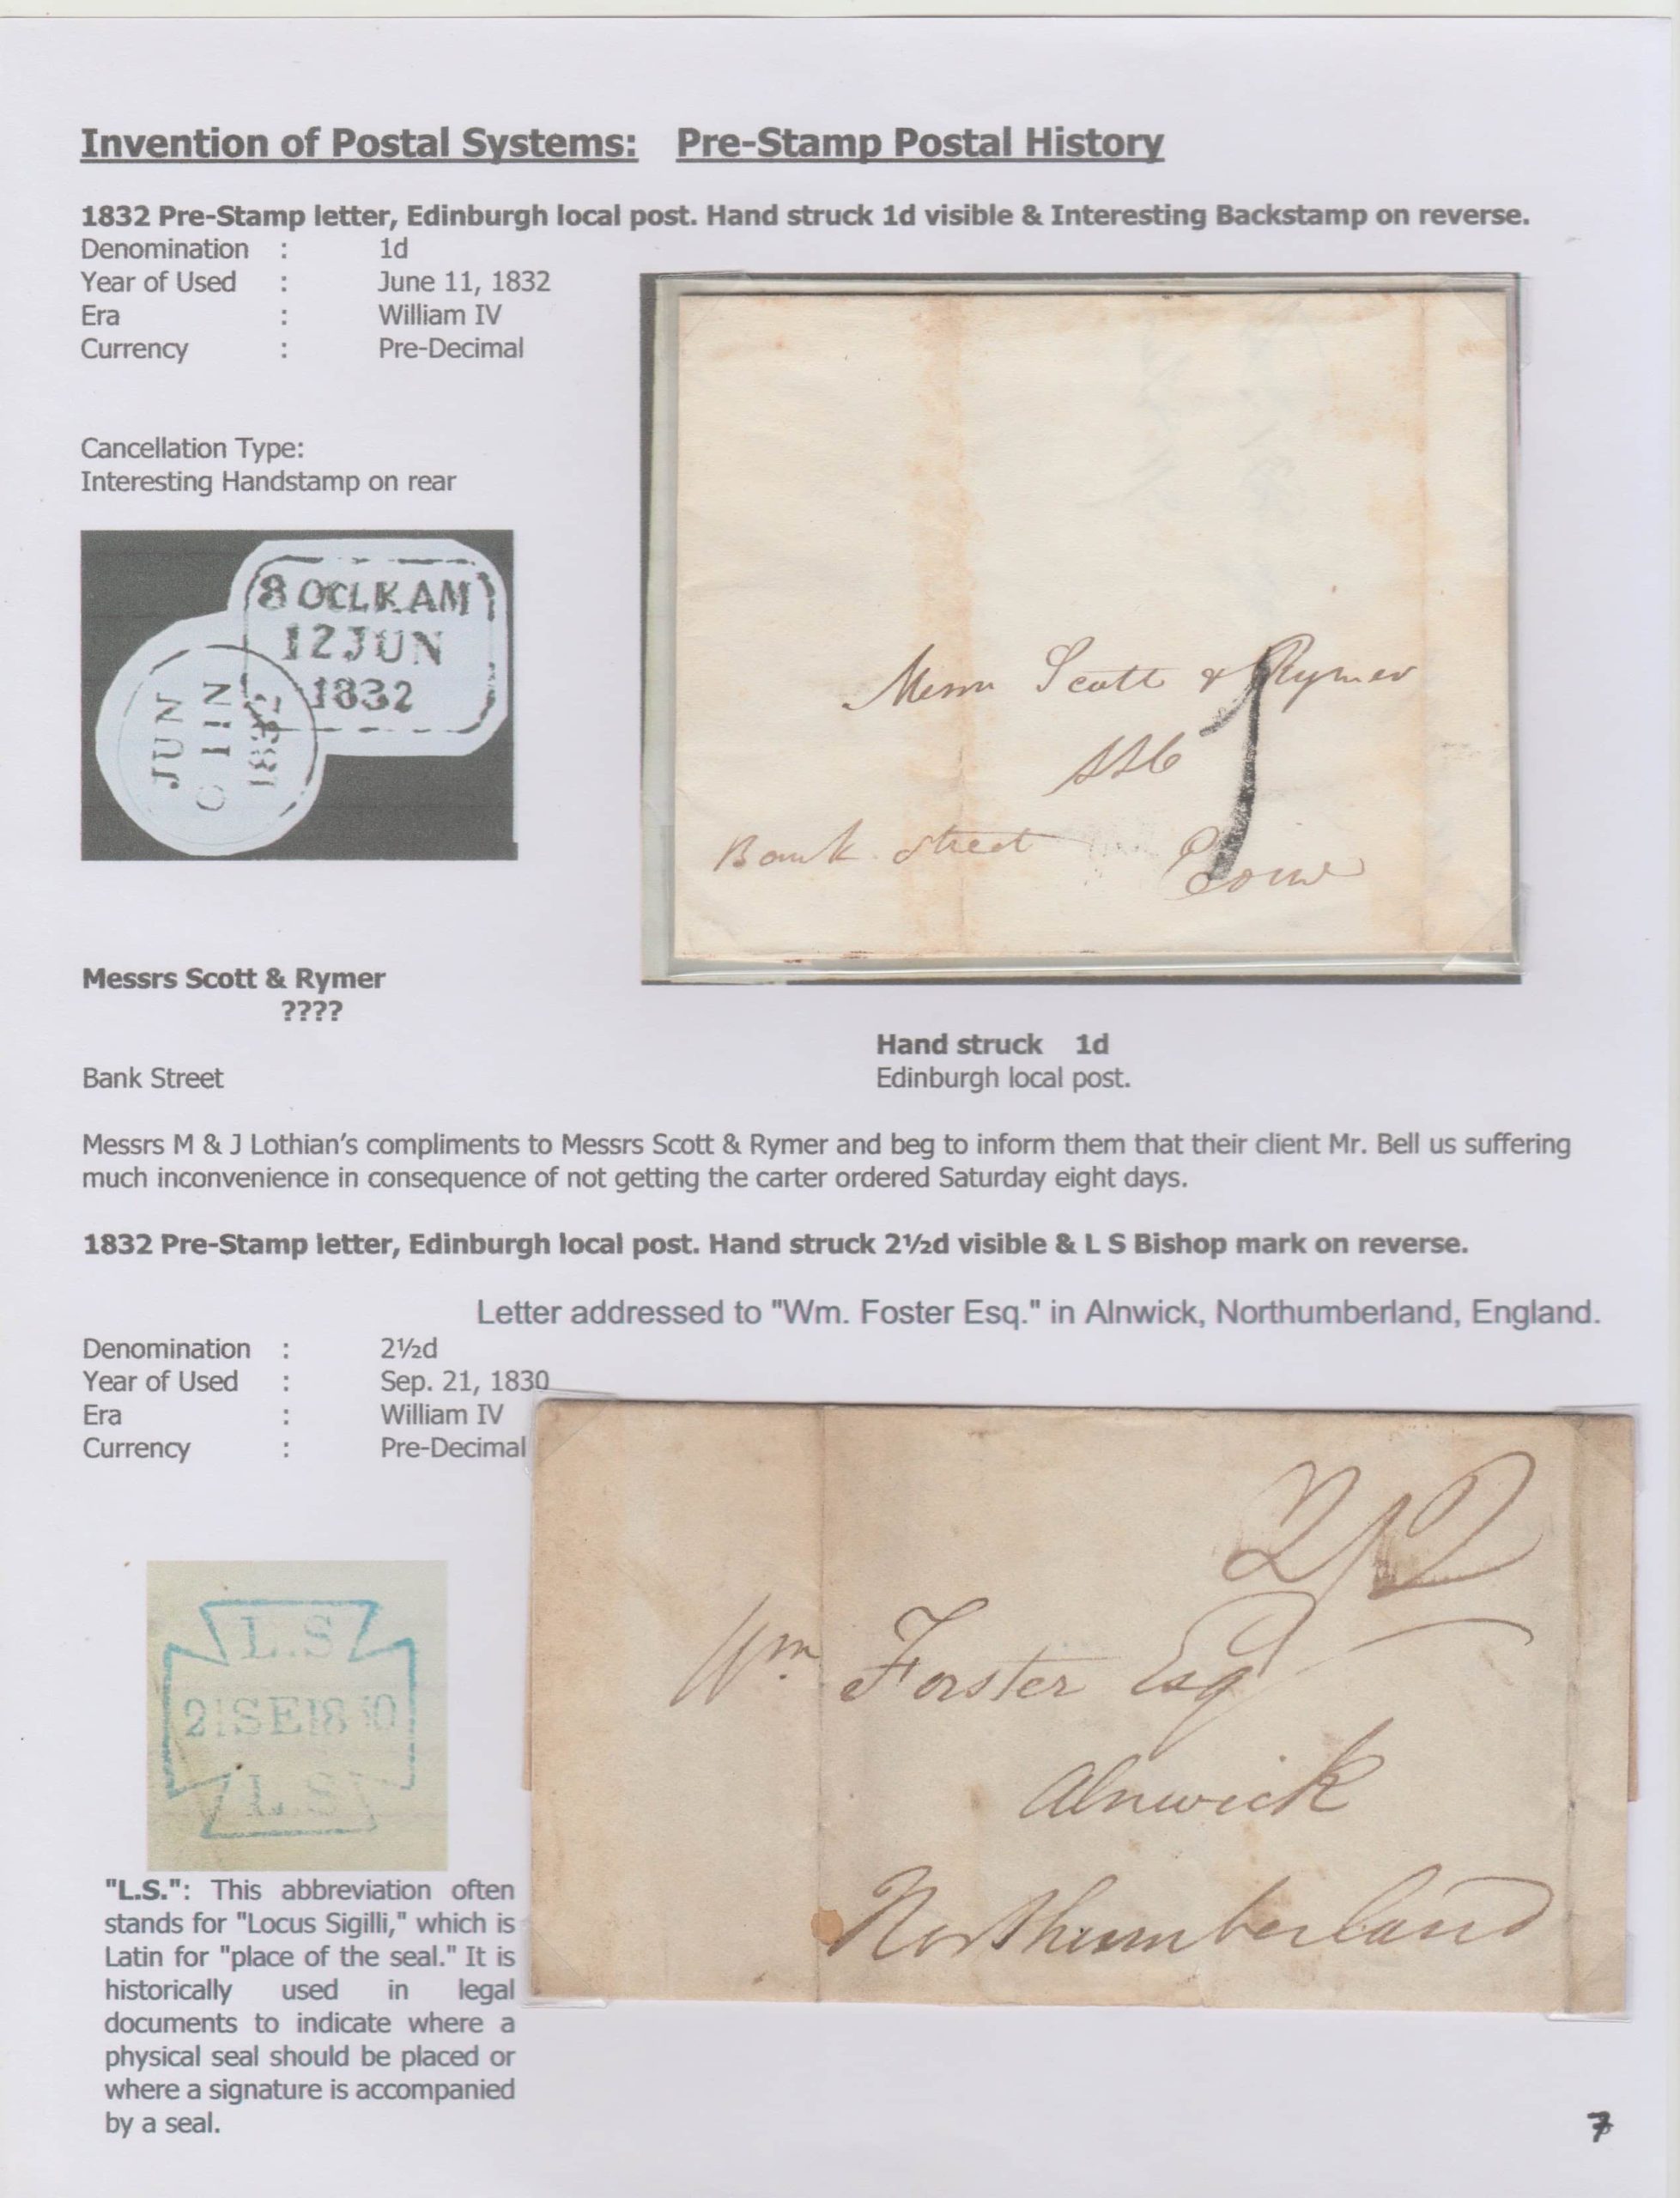 Invention of Postal Systems: Pre-Stamp Postal History
1832 Pre-Stamp letter, Edinburgh local post. Hand struck 1d visible & Interesting Backstamp on reverse.
Denomination : 1d
Year of Used : June 11, 1832
Era : William IV
Currency : Pre-Decimal
Cancellation Type:
Interesting Handstamp on rear
8 OCLK AM
12 JUN
1832
JUN
1832
Messrs Scott & Rymer
SSC
Bank Street
1
Messrs Scott & Rymer
????
Bank Street
Hand struck 1d
Edinburgh local post.
Messrs M & J Lothian's compliments to Messrs Scott & Rymer and beg to inform them that their client Mr. Bell us suffering
much inconvenience in consequence of not getting the carter ordered Saturday eight days.
1832 Pre-Stamp letter, Edinburgh local post. Hand struck 2½d visible & L S Bishop mark on reverse.
Letter addressed to "Wm. Foster Esq." in Alnwick, Northumberland, England.
Denomination : 2½d
Year of Used : Sep. 21, 1830
Era : William IV
Currency : Pre-Decimal
L.S
21SE18 0
L.S
Wm Forster Esq
Alnwick
Northumberland
"L.S.": This abbreviation often
stands for "Locus Sigilli," which is
Latin for "place of the seal." It is
historically used in legal
documents to indicate where a
physical seal should be placed or
where a signature is accompanied
by a seal.
7